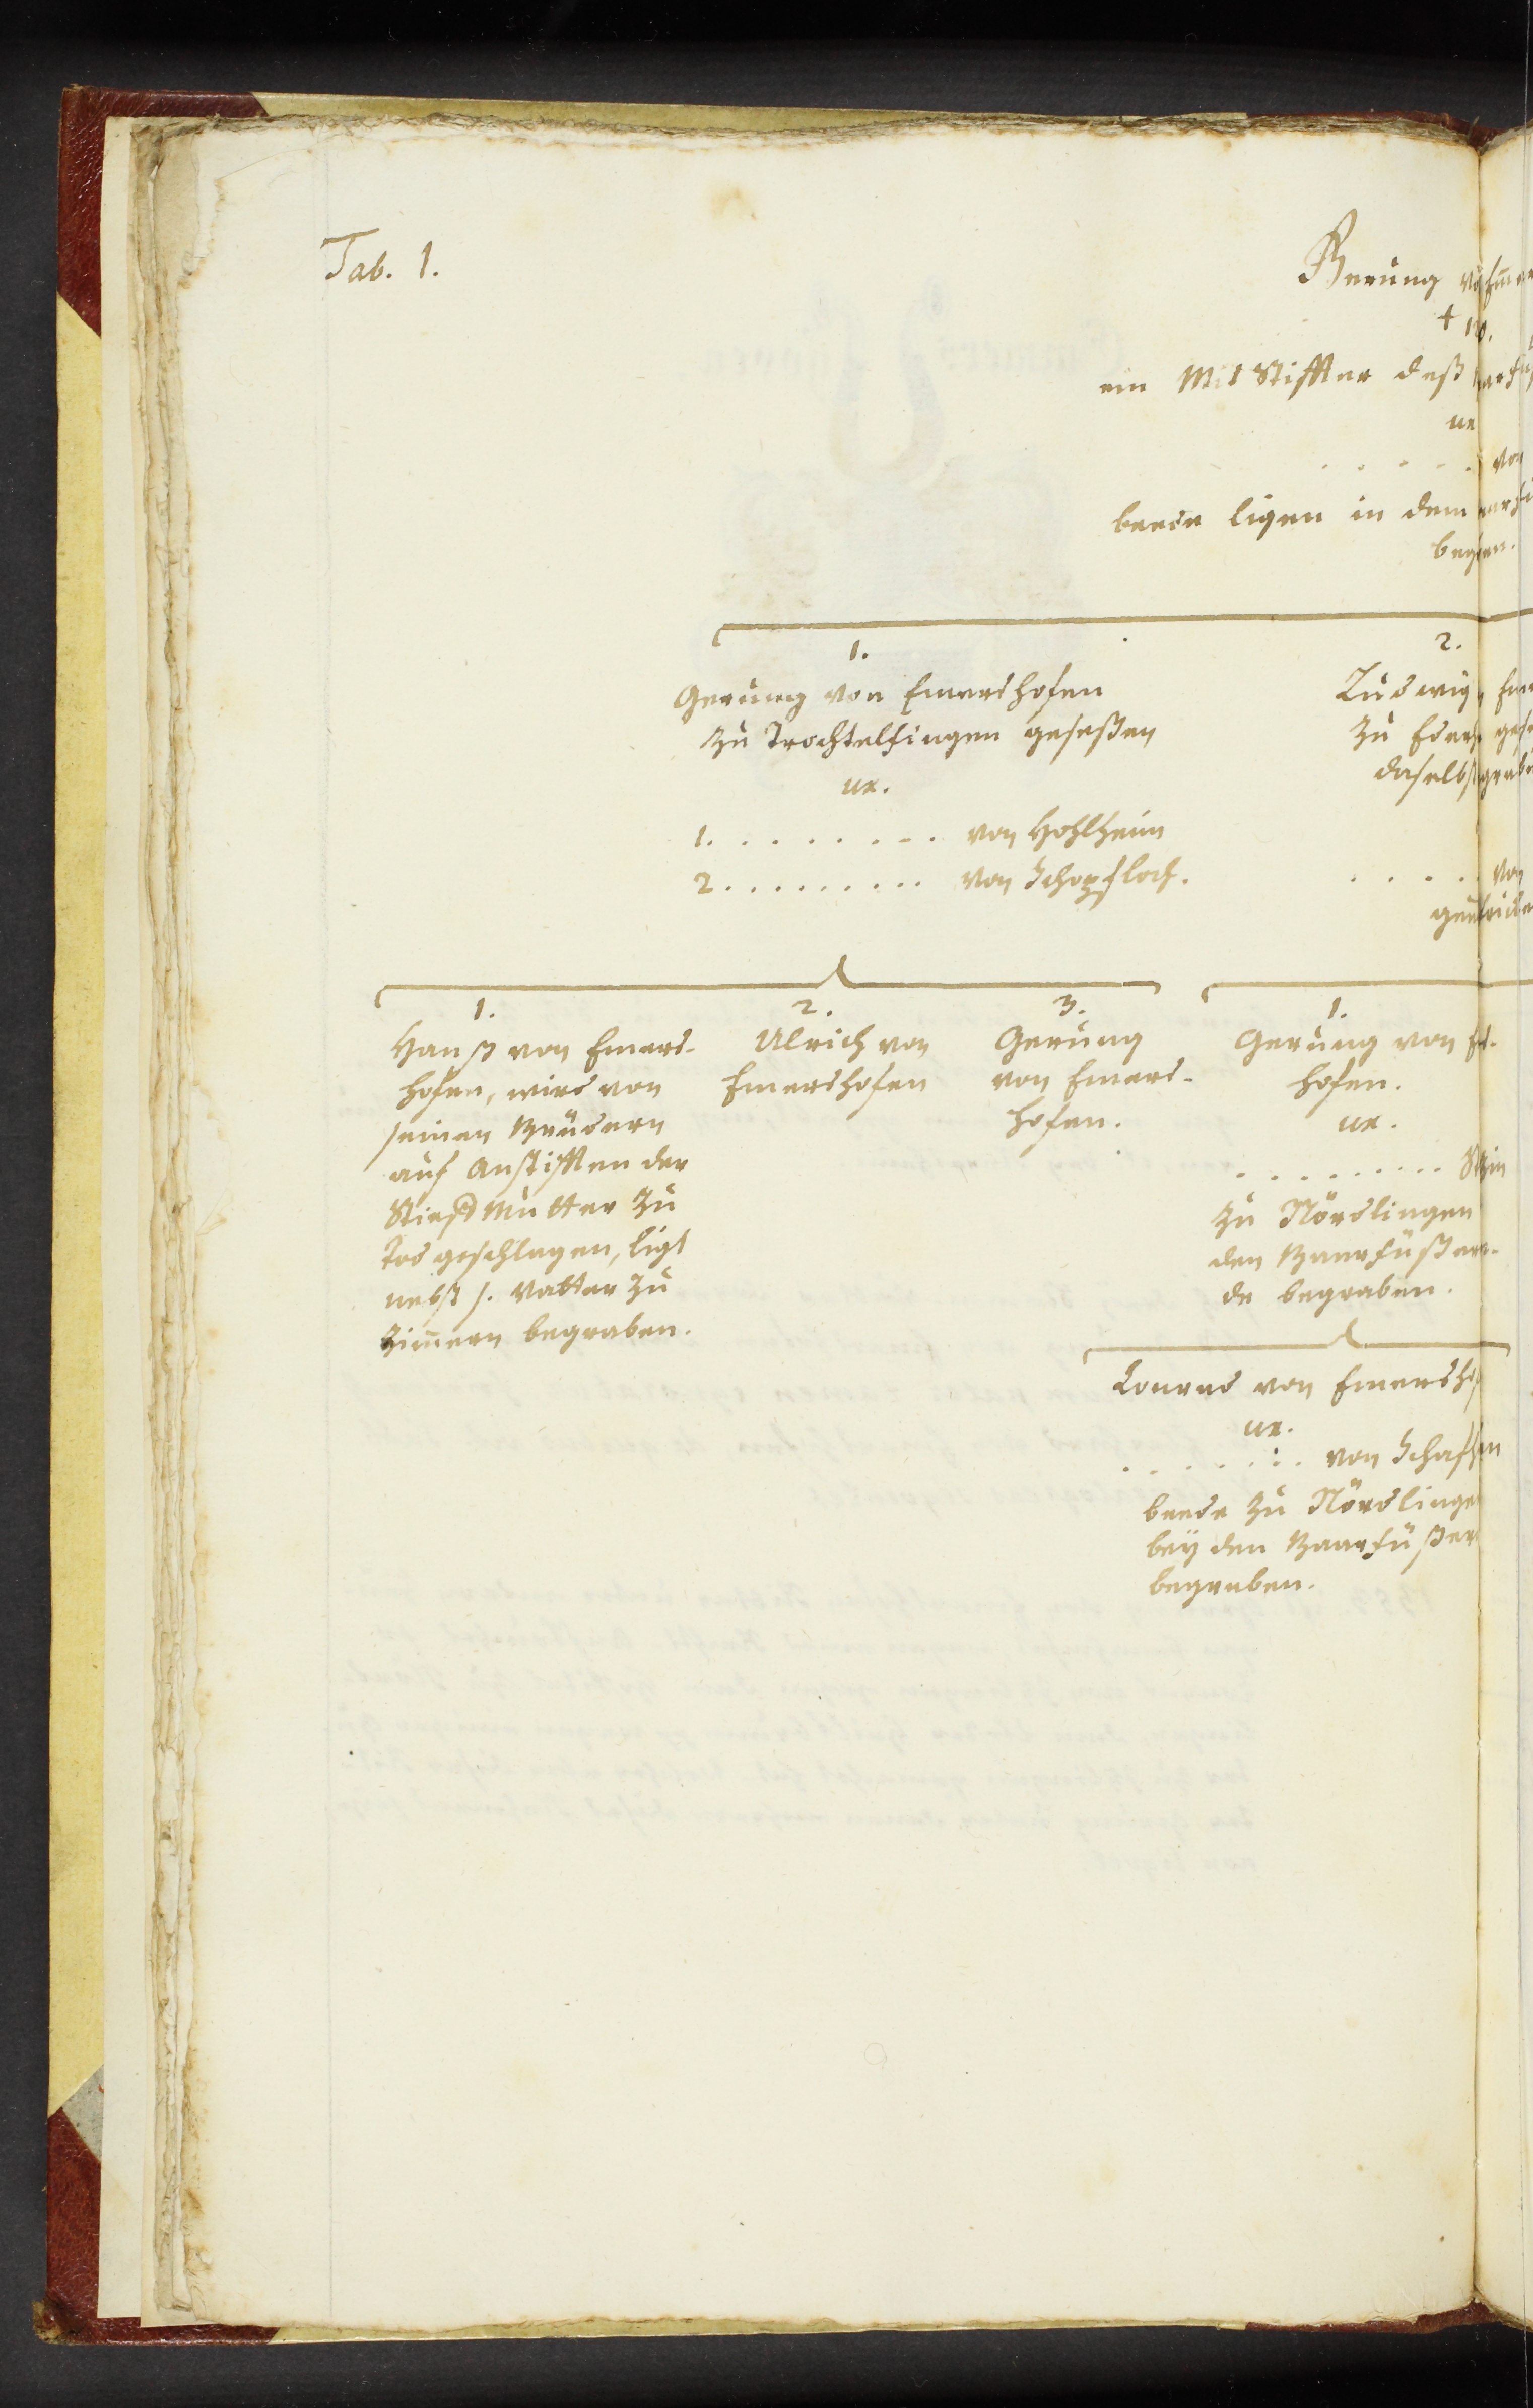 Tab. 1.
Gerung
ein Mit Stiffter deß
ux
. . . . . von
beede ligen in dem
1.
Gerung von Emershofen
zu Trochtelfingen geseßen
ux.
1. . . . . . . . . von Hohlheim
2. . . . . . . . . von Schopfloch.
2.
Ludwig
zu
daselbst
. . . . . von
1.
Hanß von Emers-
hofen, wird von
seinen Brüdern
auf Anstifften der
Stieff Mutter zu
Tod geschlagen, ligt
nebst s. Vatter zu
Zim̄ern begraben.
2.
Ulrich von
Emershofen
3.
Gerung
von Emers-
hofen.
1.
Gerung von
hofen.
ux.
. . . . . . . . .
zu Nördlingen
den Baarfüßern
begraben.
Conrad von Emersho
ux.
. . . . . . . von
beede zu Nördlinge
bey den Baarfüßer
begraben.